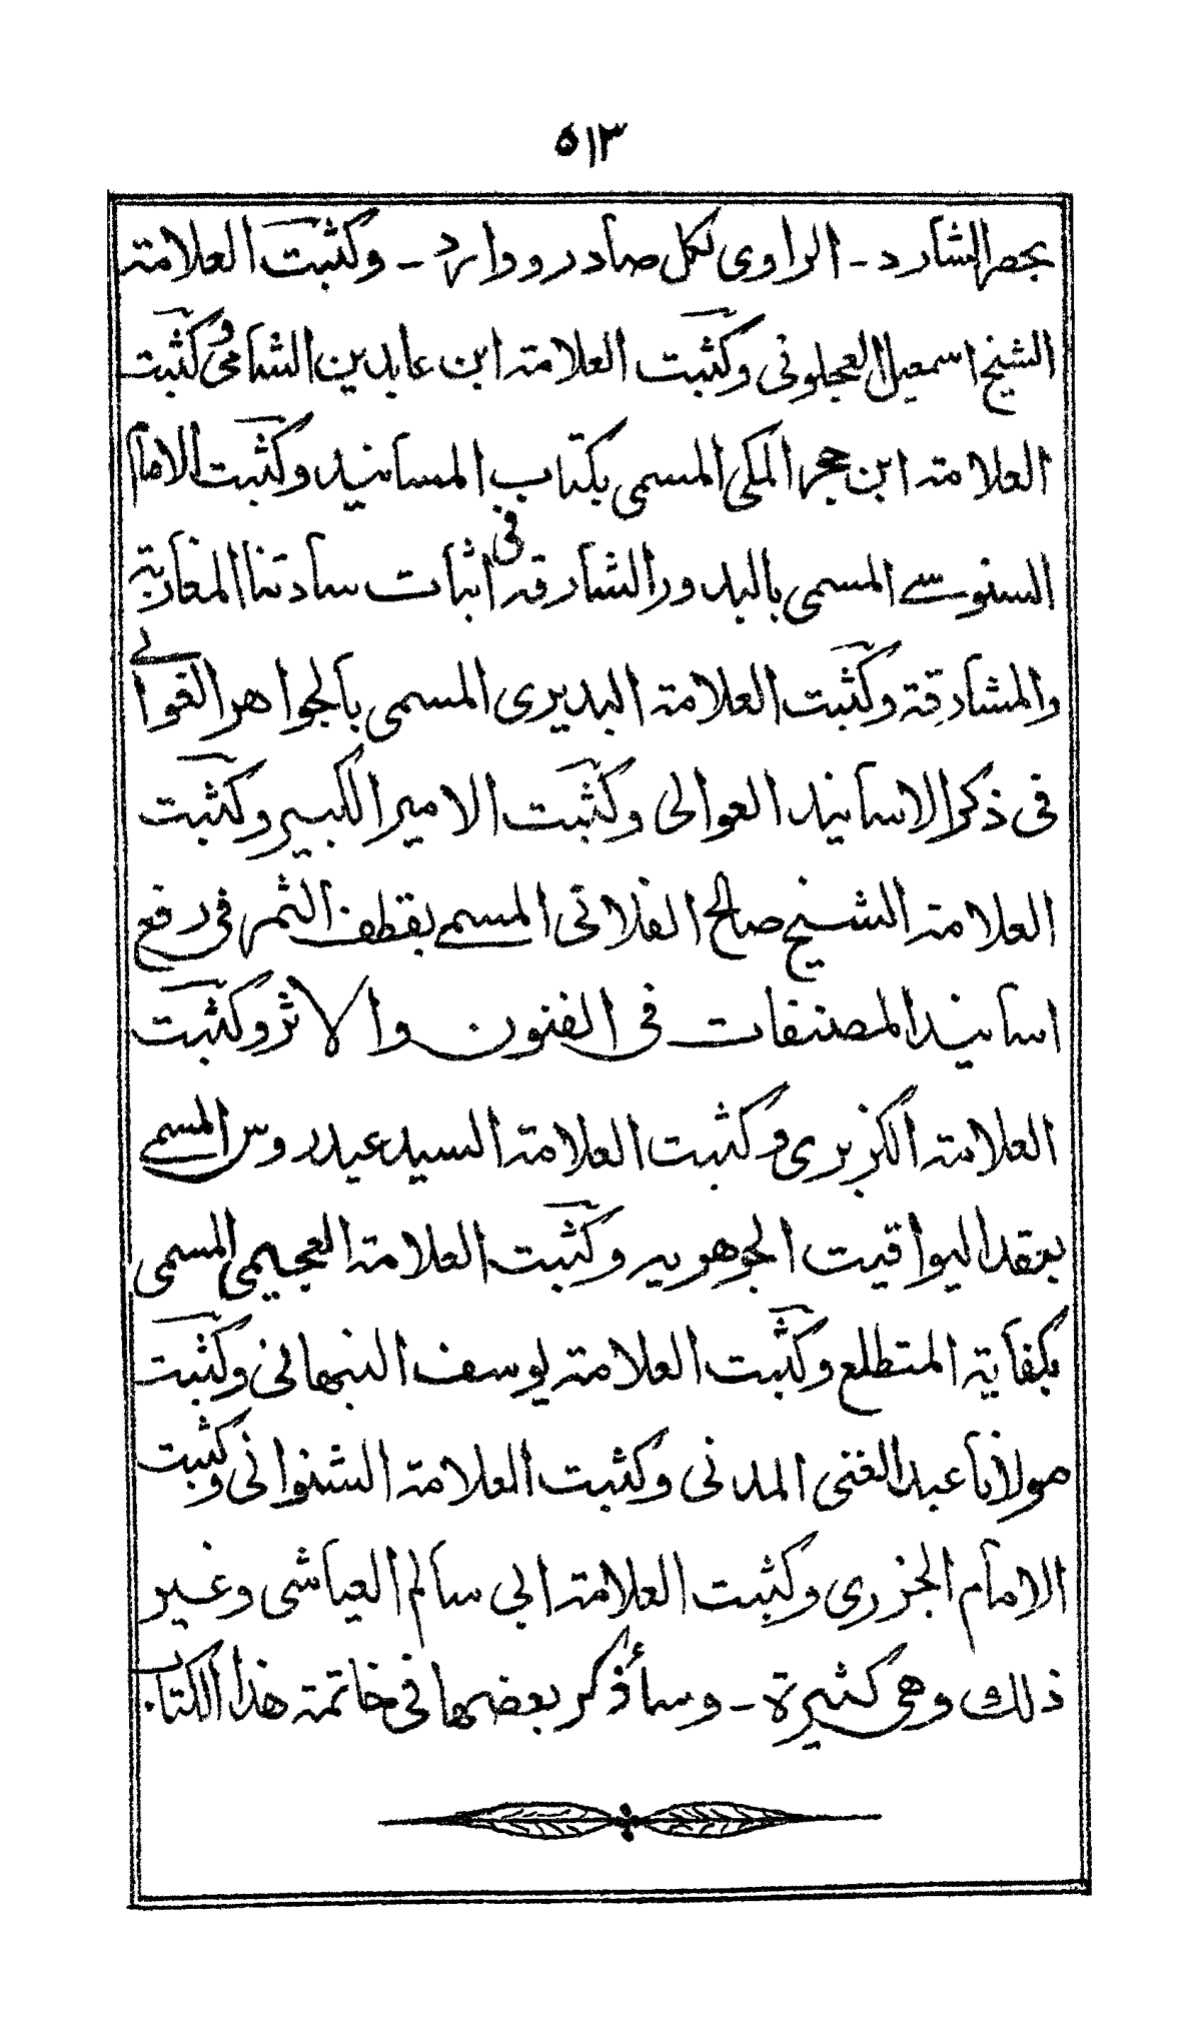 ٥١٣
بحصر الشارد - الراوى لكل صادر ووارد - وكثبت العلامة
الشيخ اسمعيل العجلونى وكثبت العلامة ابن عابدين الشامى وكثبت
العلامة ابن حجر المكى المسمى بكتاب المسانيد وكثبت الامام
السنوسے المسمى بالبدور الشارقة فى اثبات سادتنا المغاربة
والمشارقة وكثبت العلامة البديرى المسمى بالجواهر الغوالے
فى ذكر الاسانيد العوالى وكثبت الامير الكبير وكثبت
العلامة الشيخ صالح الفلانى المسمے بقطف الثمر فى رفع
اسانيد المصنفات فى الفنون والاثر وكثبت
العلامة الكزبرى وكثبت العلامة السيد عيدروس المسمے
بعقد اليواقيت الجوهريه وكثبت العلامة العجيمى المسمى
بكفاية المتطلع وكثبت العلامة يوسف النبهانى وكثبت
مولانا عبد الغنى المدنى وكثبت العلامة الشنوانى وكثبت
الامام الجزرى وكثبت العلامة ابى سالم العياشى وغير
ذلك وهى كثيرة - وسأذكر بعضها فى خاتمة هذا الكتاب.